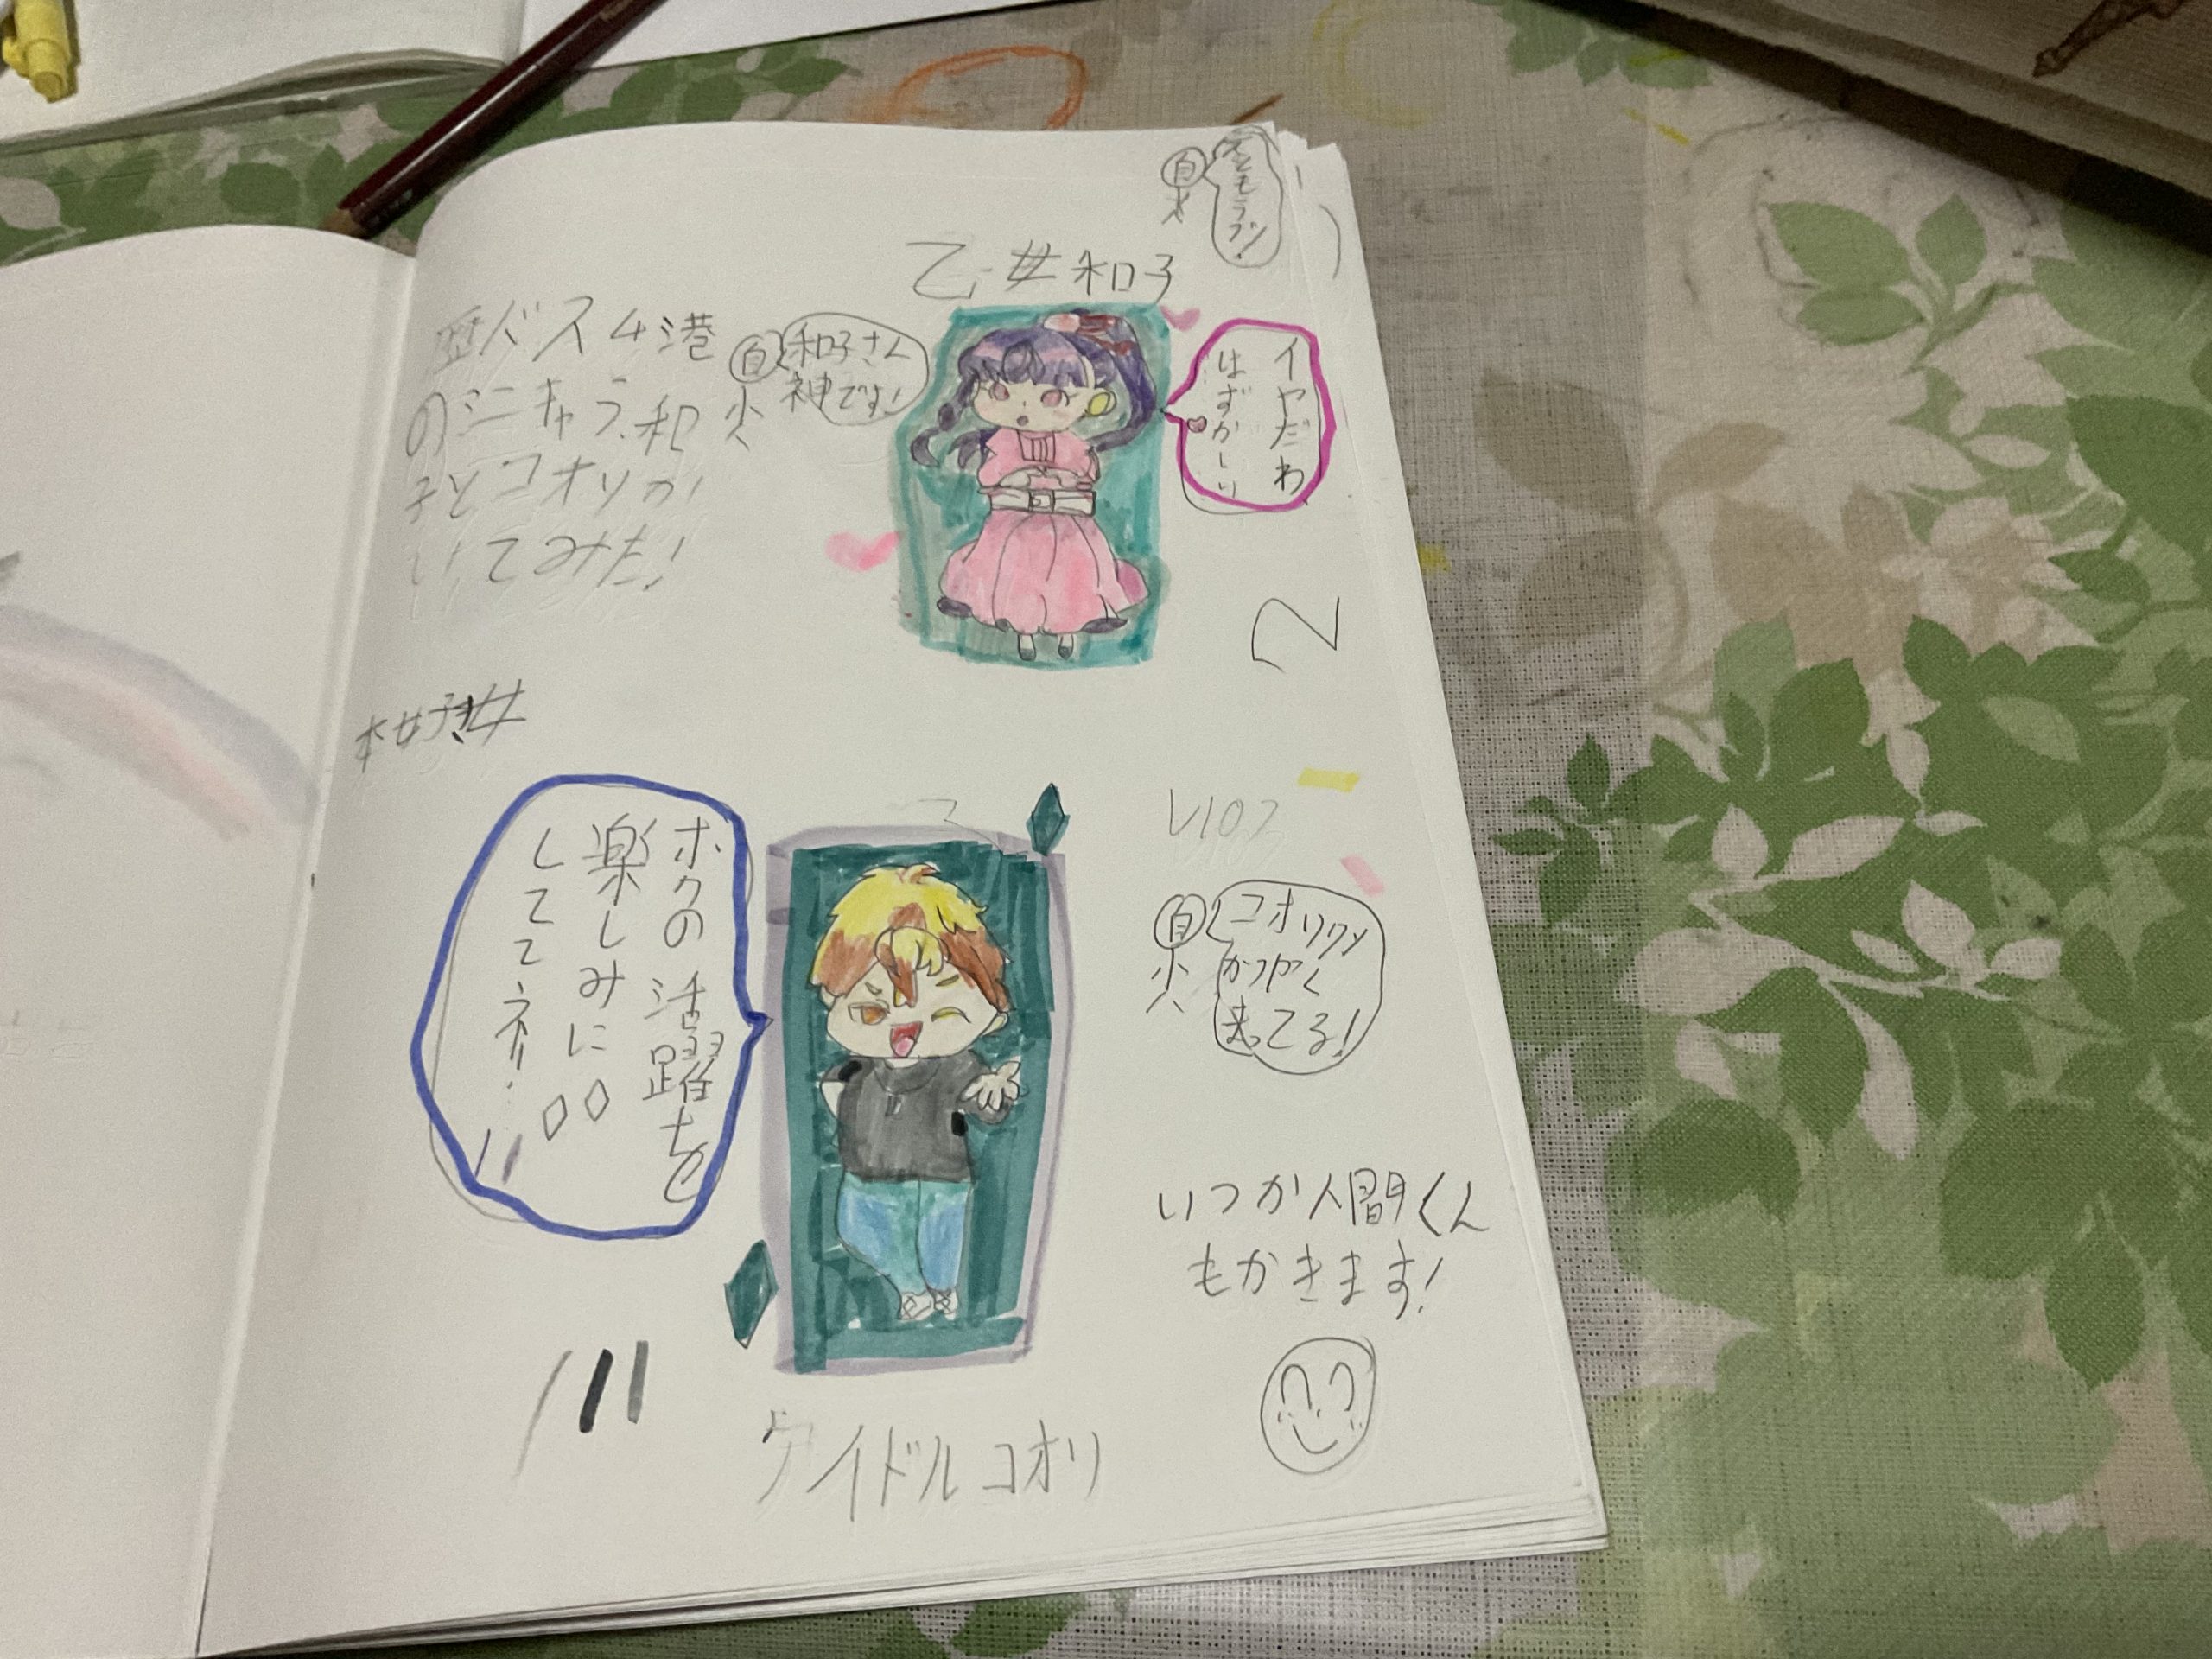 乙女和子
歴バス4港
のミニキャラ、和
子とコオリか
いてみた!
自
和子さん
神です!
イヤだわ
はずかしい
自
2
ボクの活躍を
楽しみに
しててネ!!
V107
自
コオリクン
かつやく
してる!
いつか人間くん
もかきます!
アイドルコオリ